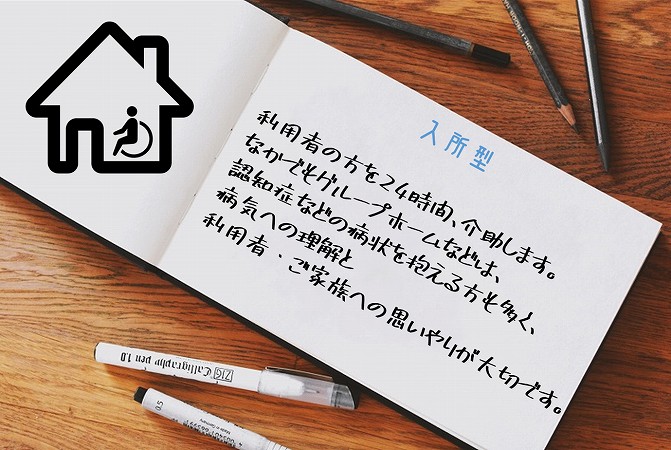 入所型
利用者の方を24時間、介助します。
なかでもグループホームなどは、
認知症などの病状を抱える方も多く、
病気への理解と
利用者・ご家族への思いやりが大切です。
ZIG Calligraphy pen 1.0
0.5
Made in Germany